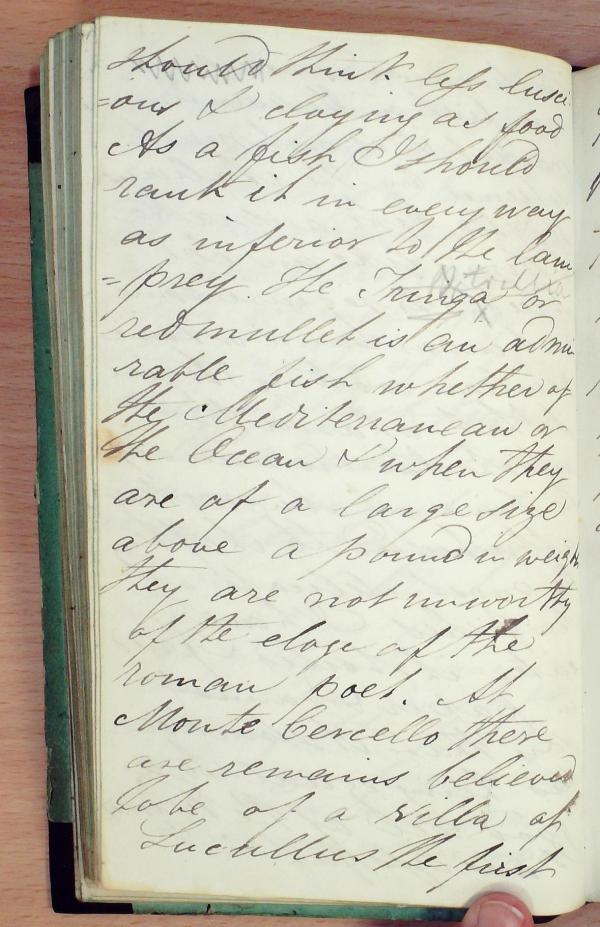 should think less lusci
=ous & cloying as food
As a fish I should
rank it in every way
as inferior to the lam
=prey. The Tringa or
red mullet is an admi
rable fish whether of
the Mediterranean or
the Ocean & when they
are of a large size
above a pound in weight
they are not unworthy
of the eloge of the
roman poet. At
Monte Cercello there
are remains believed
to be of a villa of
Lucullus the first